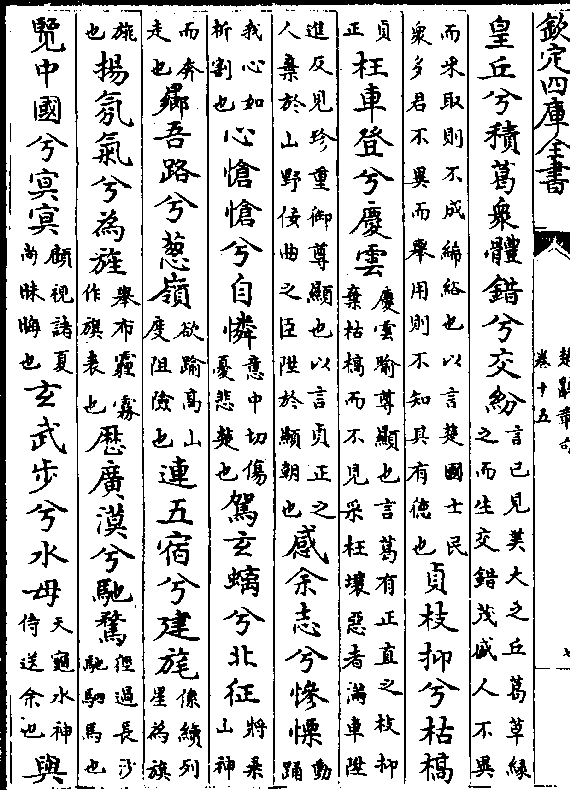 欽定四庫全書
楚辭章句
卷十五
皇丘兮積葛衆體錯兮交紛言已見美大之丘葛草緣之而生交錯茂盛人不異
而采取則不成絺綌也以言楚國士民衆多君不異而舉用則不知其有德也貞枝抑兮枯槁
貞正枉車登兮慶雲慶雲喻尊顯也言葛有正直之枝抑棄枯槁而不見采枉壞惡者滿車陞
進反見珍重御尊顯也以言貞正之人棄於山野佞曲之臣陞於顯朝也感余志兮慘慄動踊
我心如析割也心愴愴兮自憐意中切傷憂悲楚也駕玄螭兮北征將乘山神
而奔走也鄉吾路兮葱嶺欲踰高山度阻險也連五宿兮建旄係續列星為旗
旄也揚氛氣兮為旌舉布霾霧作旗表也歷廣漠兮馳騖徑過長沙馳駟馬也
覽中國兮冥冥顧視諸夏尚昧晦也玄武步兮水母天龜水神侍送余也與